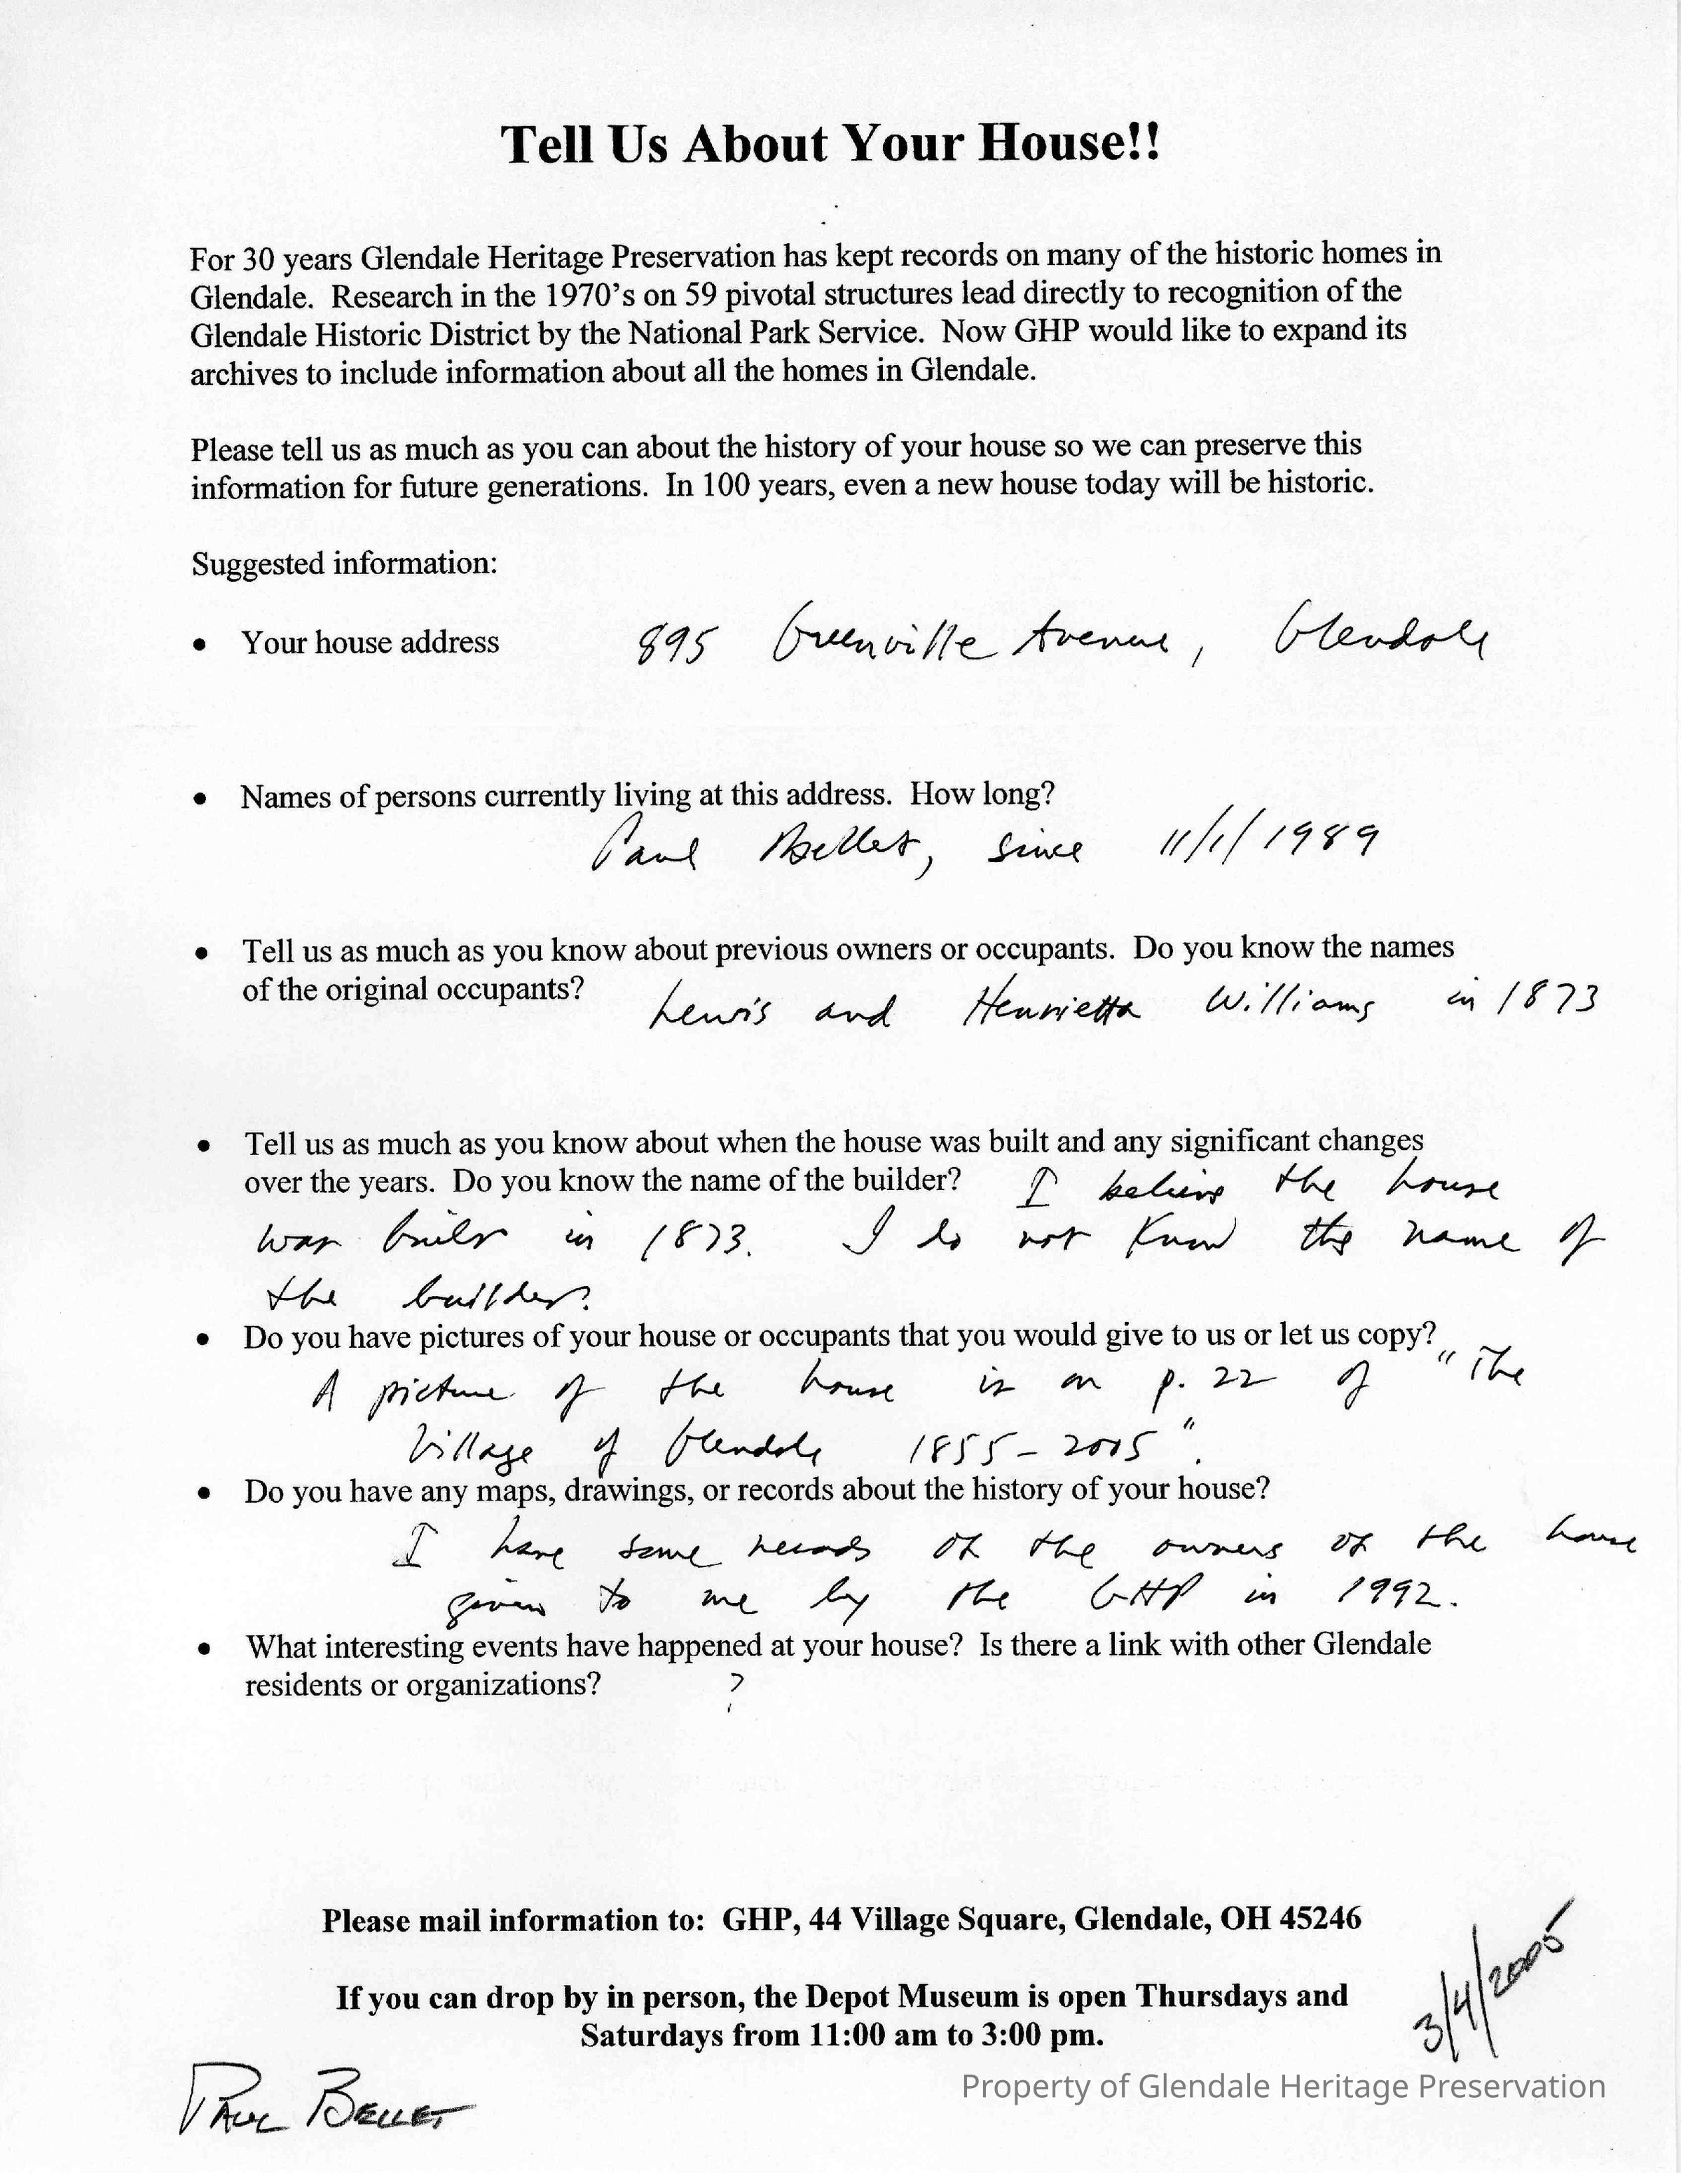 Tell Us About Your House!!
For 30 years Glendale Heritage Preservation has kept records on many of the historic homes in
Glendale. Research in the 1970's on 59 pivotal structures lead directly to recognition of the
Glendale Historic District by the National Park Service. Now GHP would like to expand its
archives to include information about all the homes in Glendale.
Please tell us as much as you can about the history of your house so we can preserve this
information for future generations. In 100 years, even a new house today will be historic.
Suggested information:
• Your house address 895 Greenville Avenue, Glendale
• Names of persons currently living at this address. How long?
Paul Bellet, since 11/1/1989
• Tell us as much as you know about previous owners or occupants. Do you know the names
of the original occupants? Lewis and Henrietta Williams in 1873
• Tell us as much as you know about when the house was built and any significant changes
over the years. Do you know the name of the builder? I believe the house
was built in 1873. I do not know the name of
the builder.
• Do you have pictures of your house or occupants that you would give to us or let us copy?
A picture of the house is on p. 22 of "The
Village of Glendale 1855-2005".
• Do you have any maps, drawings, or records about the history of your house?
I have some records of the owners of the house
given to me by the GHP in 1992.
• What interesting events have happened at your house? Is there a link with other Glendale
residents or organizations? ?
Please mail information to: GHP, 44 Village Square, Glendale, OH 45246
If you can drop by in person, the Depot Museum is open Thursdays and
Saturdays from 11:00 am to 3:00 pm.
3/4/2005
Paul Bellet
Property of Glendale Heritage Preservation